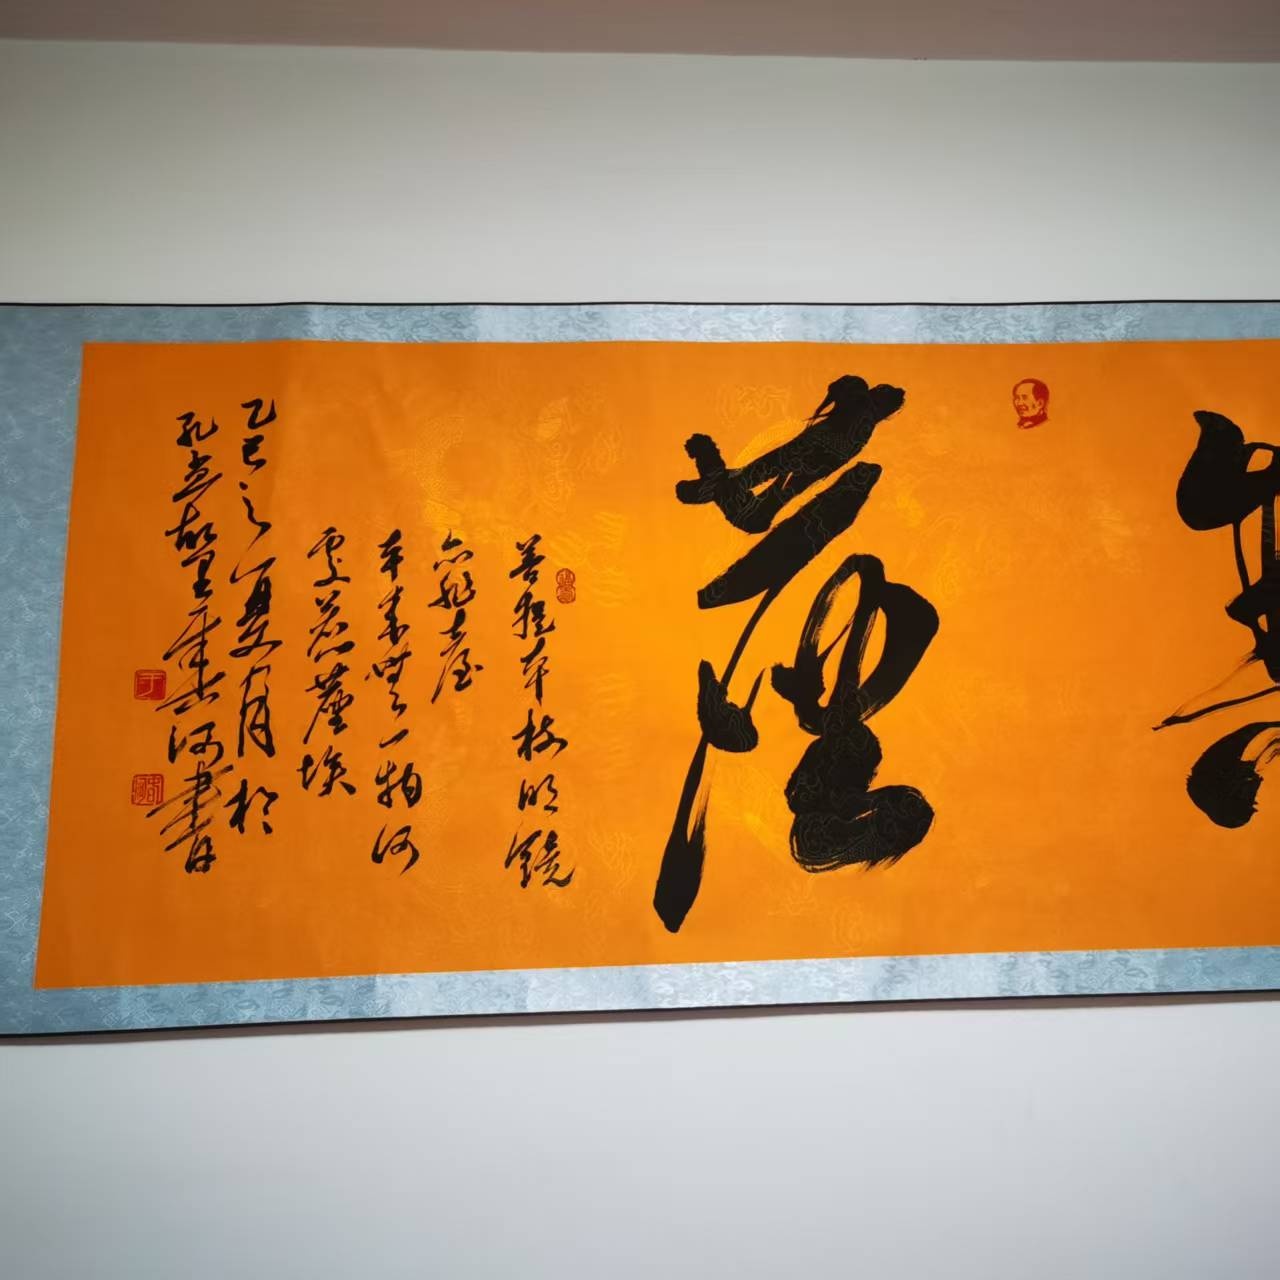 無
塵
菩提本樹明鏡
亦非臺
本來無一物何
處惹塵埃
乙巳之夏月於
孔孟故里于忠河書
于